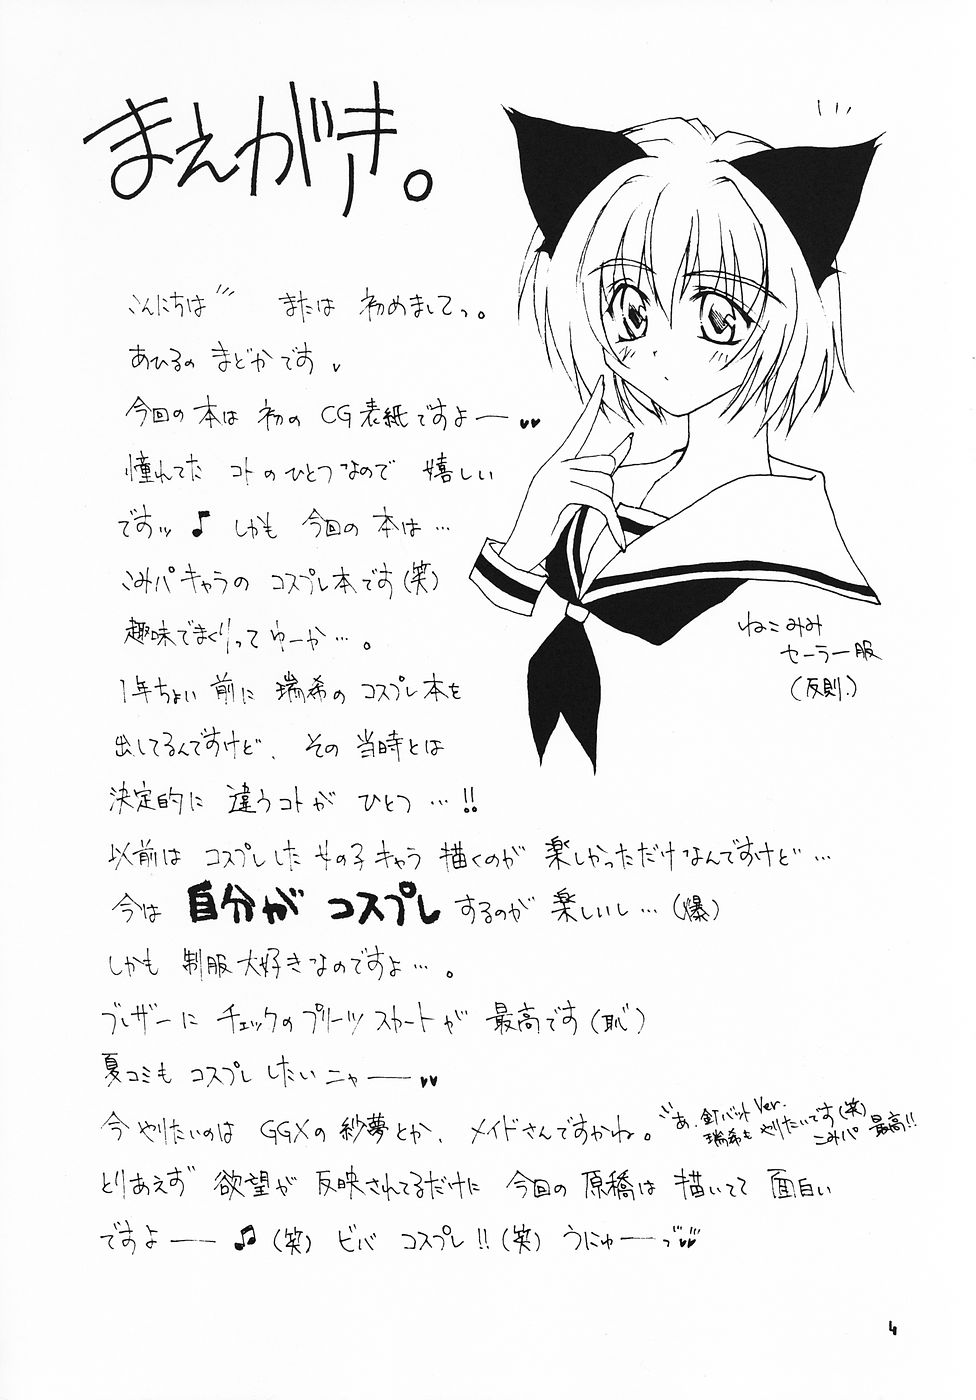 まえがき。
こんにちは゛ または 初めましてっ。
あひるの まどかです
今回の本は 初の CG表紙ですよー♥♥
憧れてた コトのひとつなので 嬉しい
ですッ♪ しかも 今回の本は…
こみパキャラの コスプレ本です(笑)
趣味でまくりってゆーか…。
1年ちょい前に 瑞希の コスプレ本を
出してるんですけど、その当時とは
決定的に 違うコトが ひとつ…!!
以前は コスプレした 女の子キャラ 描くのが 楽しかっただけなんですけど…
今は 自分が コスプレするのが 楽しいし…(爆)
しかも 制服大好きなのですよ…。
ブレザーに チェックのプリーツスカートが 最高です(恥)
夏コミも コスプレしたいニャー♥♥
今 やりたいのは GGXの紗夢とか、メイドさんですかね。
あ、釘バットVer.
瑞希も やりたいです(笑)
こみパ 最高!!
とりあえず 欲望が 反映されてるだけに 今回の 原稿は 描いてて 面白い
ですよー♫(笑) ビバ コスプレ!!(笑) うにゅーっ゛♥♥
ねこみみ
セーラー服
(反則.)
4